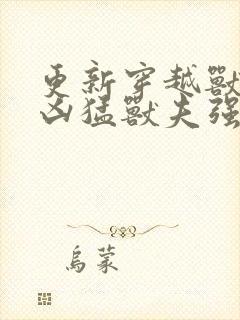 更新穿越獸
凶猛獸夫强
烏蒙